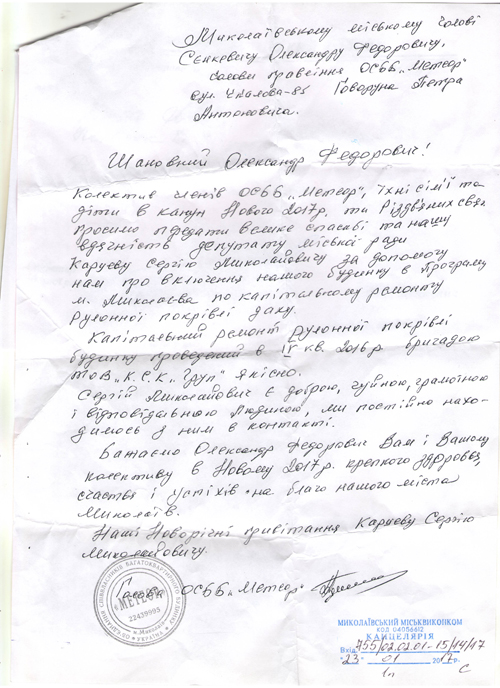 Миколаївському міському голові
Сєнкевичу Олександру Федоровичу,
голови правління ОСББ „Метеор"
вул. Чкалова-85 Говоруна Петра
Антоновича.
Шановний Олександр Федорович!
Колектив членів ОСББ „Метеор", їхні сім'ї та
діти в канун Нового 2017р. та Різдвяних свят
просимо передати велике спасибі та нашу
вдячність депутату міської ради
Карцеву Сергію Миколайовичу за допомогу
нам про включення нашого будинку в Програму
м. Миколаєва по капітальному ремонту
рулонної покрівлі даху.
Капітальний ремонт рулонної покрівлі
будинку проведений в IV кв. 2016р бригадою
ТОВ „К.С.К. „Груп" якісно.
Сергій Миколайович є доброю, чуйною, грамотною
і відповідальною людиною, ми постійно нахо-
димось з ним в контакті.
Бажаємо Олександр Федорович Вам і Вашому
колективу в Новому 2017р. крепкого здоровья,
счастья і успіхів на благо нашого міста
Миколаїв.
Наші Новорічні привітання Карцеву Сергію
Миколайовичу.
Голова ОСББ „Метеор"
ОБ'ЄДНАННЯ СПІВВЛАСНИКІВ БАГАТОКВАРТИРНОГО БУДИНКУ
"МЕТЕОР"
22439995
м.Миколаїв
УКРАЇНА
МИКОЛАЇВСЬКИЙ МІСЬКВИКОНКОМ
КОД 04056612
КАНЦЕЛЯРІЯ
Вхід 755/02.02.01-15/14/17
"23" 01 2017р.